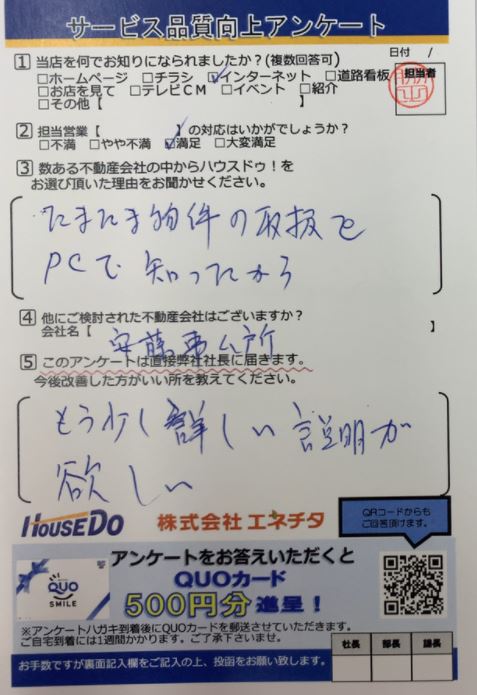 サービス品質向上アンケート
日付 /
担当者
1 当店を何でお知りになられましたか?(複数回答可)
□ホームページ □チラシ ☑インターネット □道路看板
□お店を見て □テレビCM □イベント □紹介
□その他【 】
2 担当営業【 】の対応はいかがでしょうか?
□不満 □やや不満 ☑満足 □大変満足
3 数ある不動産会社の中からハウスドゥ!を
お選び頂いた理由をお聞かせください。
たまたま物件の取扱を
PCで知ったから
4 他にご検討された不動産会社はございますか?
会社名【 】
5 このアンケートは直接弊社社長に届きます。
今後改善した方がいい所を教えてください。
もう少し詳しい説明が
欲しい
HOUSEDO 株式会社 エネチタ
QRコードからも
ご回答頂けます。
アンケートをお答えいただくと
QUOカード
500円分進呈!
QUO
SMILE
※アンケートハガキ到着後にQUOカードを郵送させていただきます。
ご自宅到着には1週間かかります。ご了承下さいませ。
社長 部長 課長
お手数ですが裏面記入欄をご記入の上、投函をお願い致します。